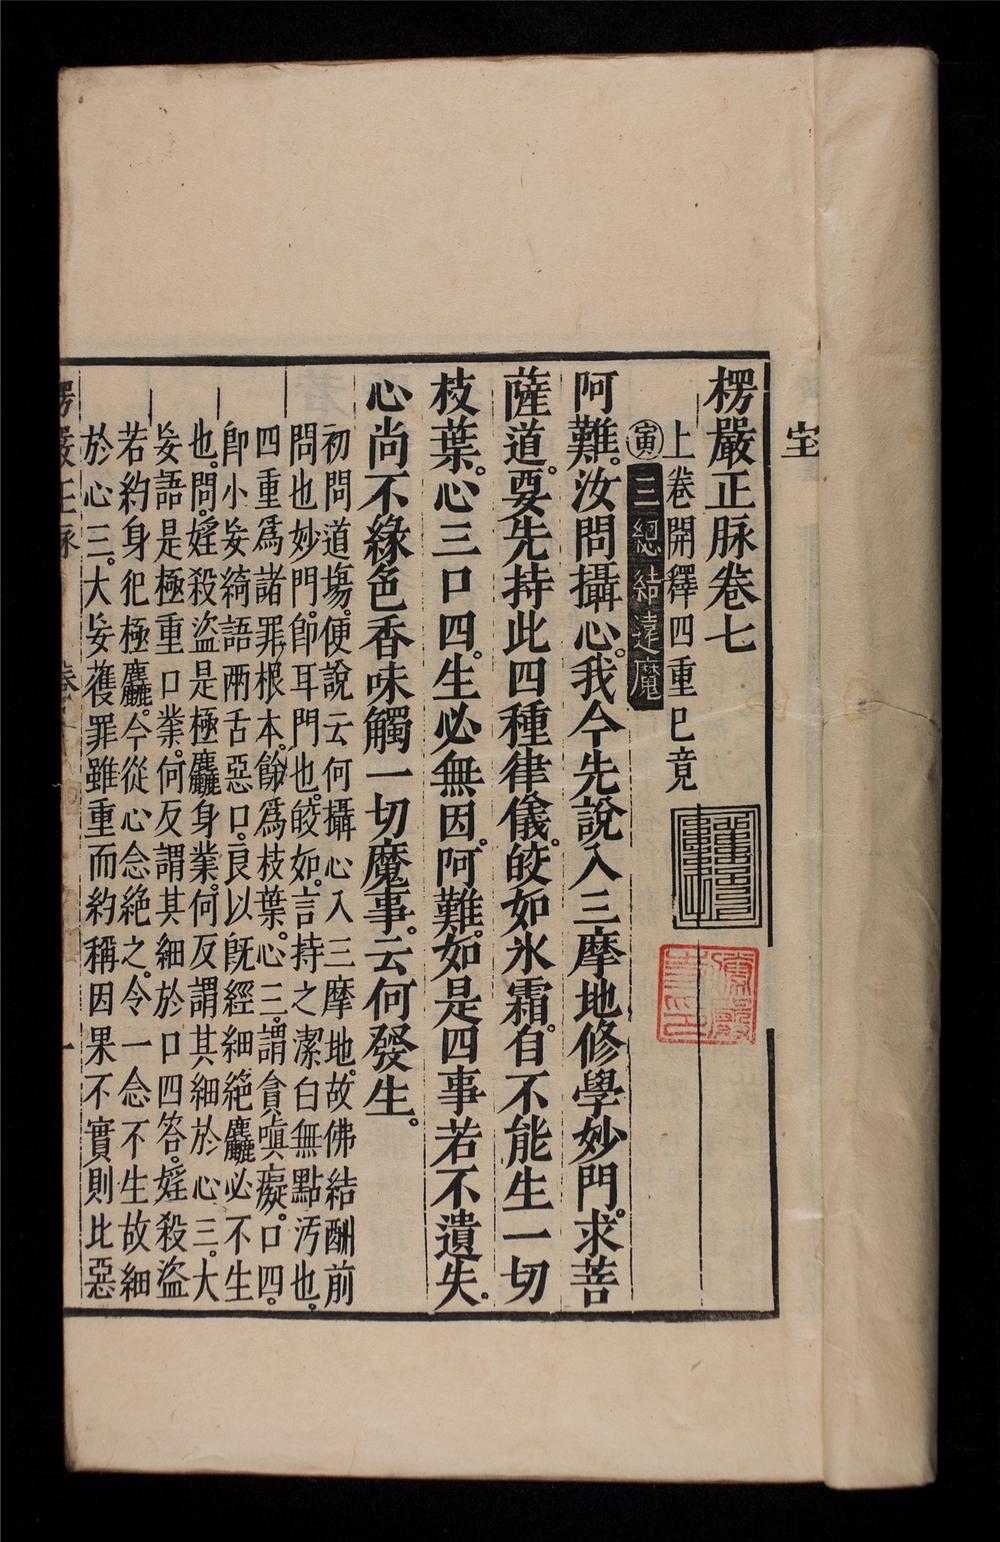 楞嚴正脉卷七
上卷開釋四重已竟
寅三總結遠魔
阿難。汝問攝心。我今先說入三摩地修學妙門。求菩
薩道。要先持此四種律儀。皎如氷霜。自不能生一切
枝葉。心三口四。生必無因。阿難。如是四事若不遺失。
心尚不緣色香味觸一切魔事。云何發生。
初問道塲。便說云何攝心入三摩地。故佛結酬前
問也妙門。即耳門也。皎如。言持之潔白無點汚也。
四重爲諸罪根本。餘爲枝葉。心三。謂貪嗔癡。口四。
即小妄綺語兩舌惡口。良以旣經細絕麤必不生
也。問。婬殺盜是極麤身業。何反謂其細於心三。大
妄語是極重口業。何反謂其細於口四。答。婬殺盜
若約身犯極麤。今從心念絕之。令一念不生故細
於心三。大妄蔑罪雖重而約稱因果不實則比惡
楞嚴正脉 卷 一